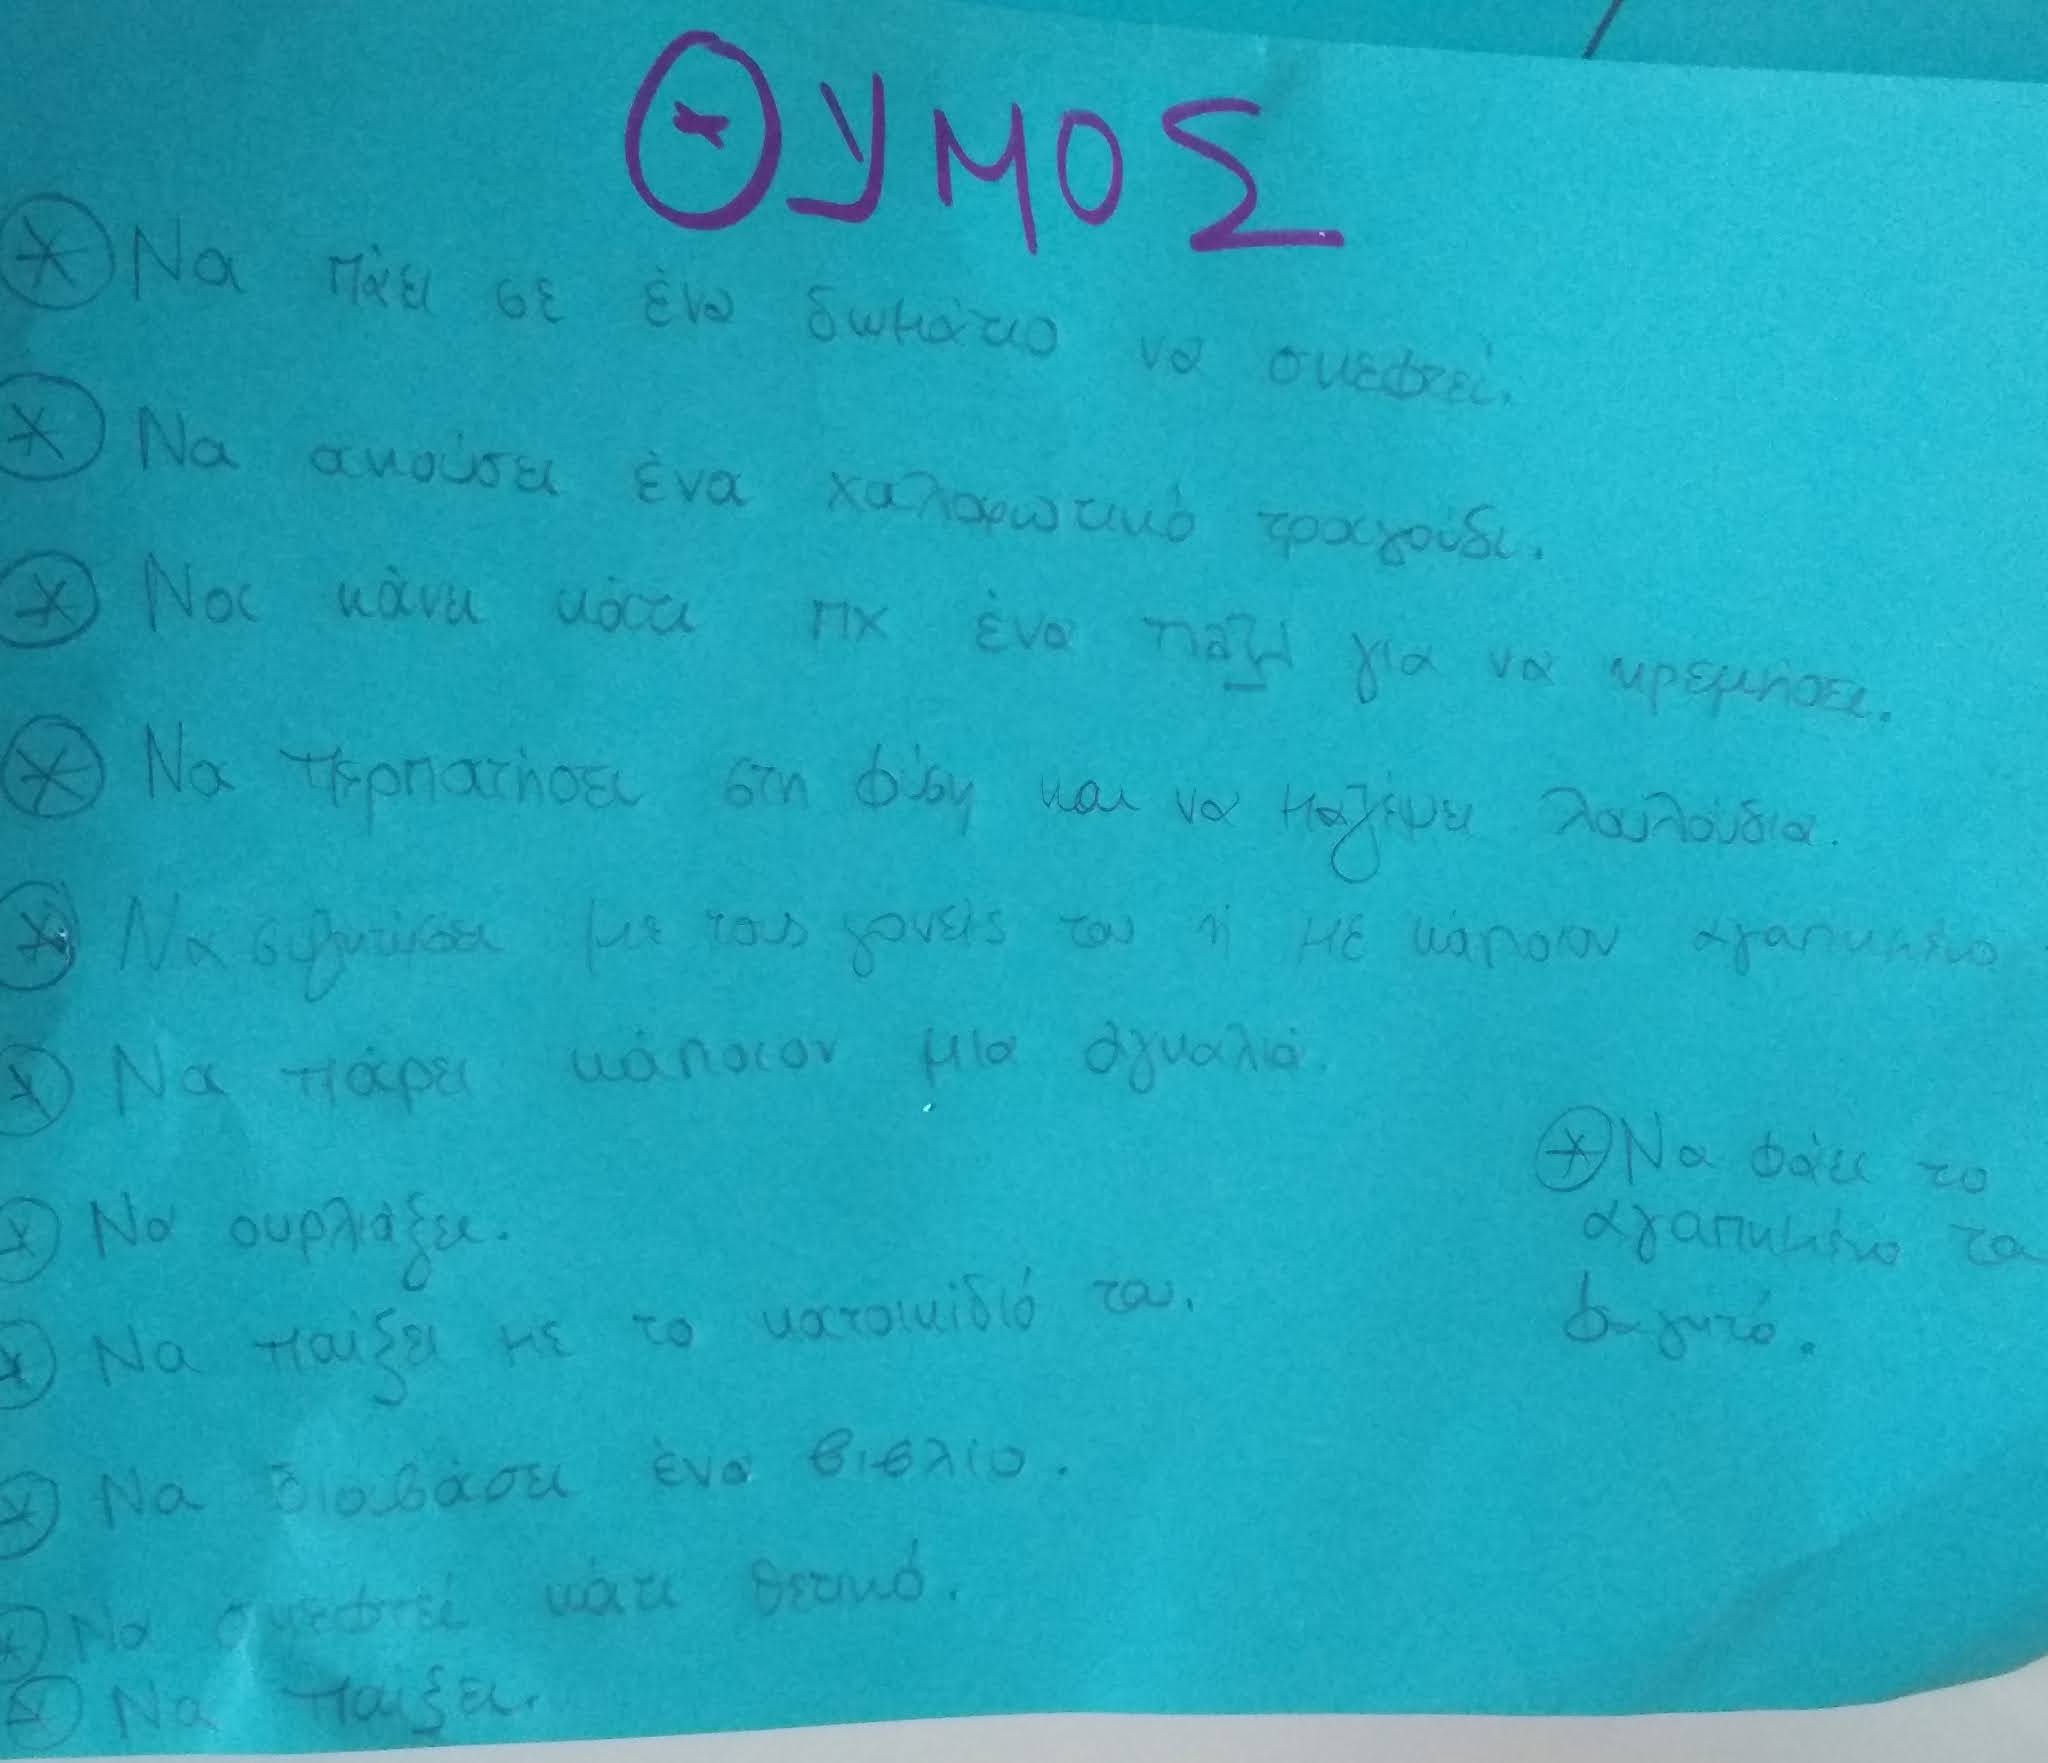 ΘΥΜΟΣ
Να πάει σε ένα δωμάτιο να σκεφτεί.
Να ακούσει ένα χαλαρωτικό τραγούδι.
Να κάνει κάτι πχ ένα παζλ για να κρεμήσει.
Να περπατήσει στη φύση και να μαζέψει λουλούδια.
Να συζητήσει με τους γονείς του ή με κάποιον αγαπημένο
Να πάρει κάποιον μια αγκαλιά.
Να ουρλιάξει.
Να παίξει με το κατοικίδιό του.
Να διαβάσει ένα βιβλίο.
Να σκεφτεί κάτι θετικό.
Να παίξει.
Να φάει το
αγαπημένο του
φαγητό.